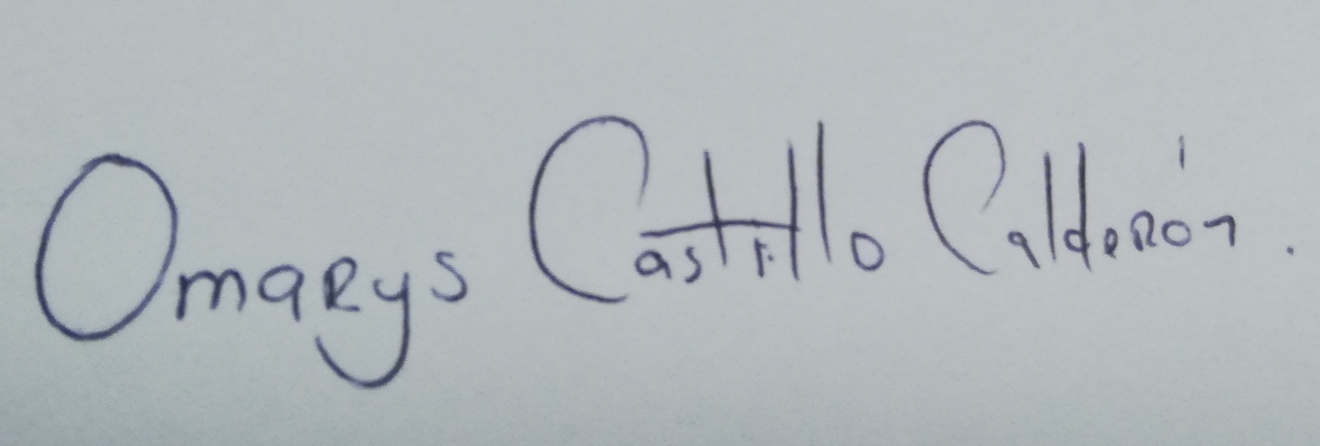 Omarys Castillo Calderón.